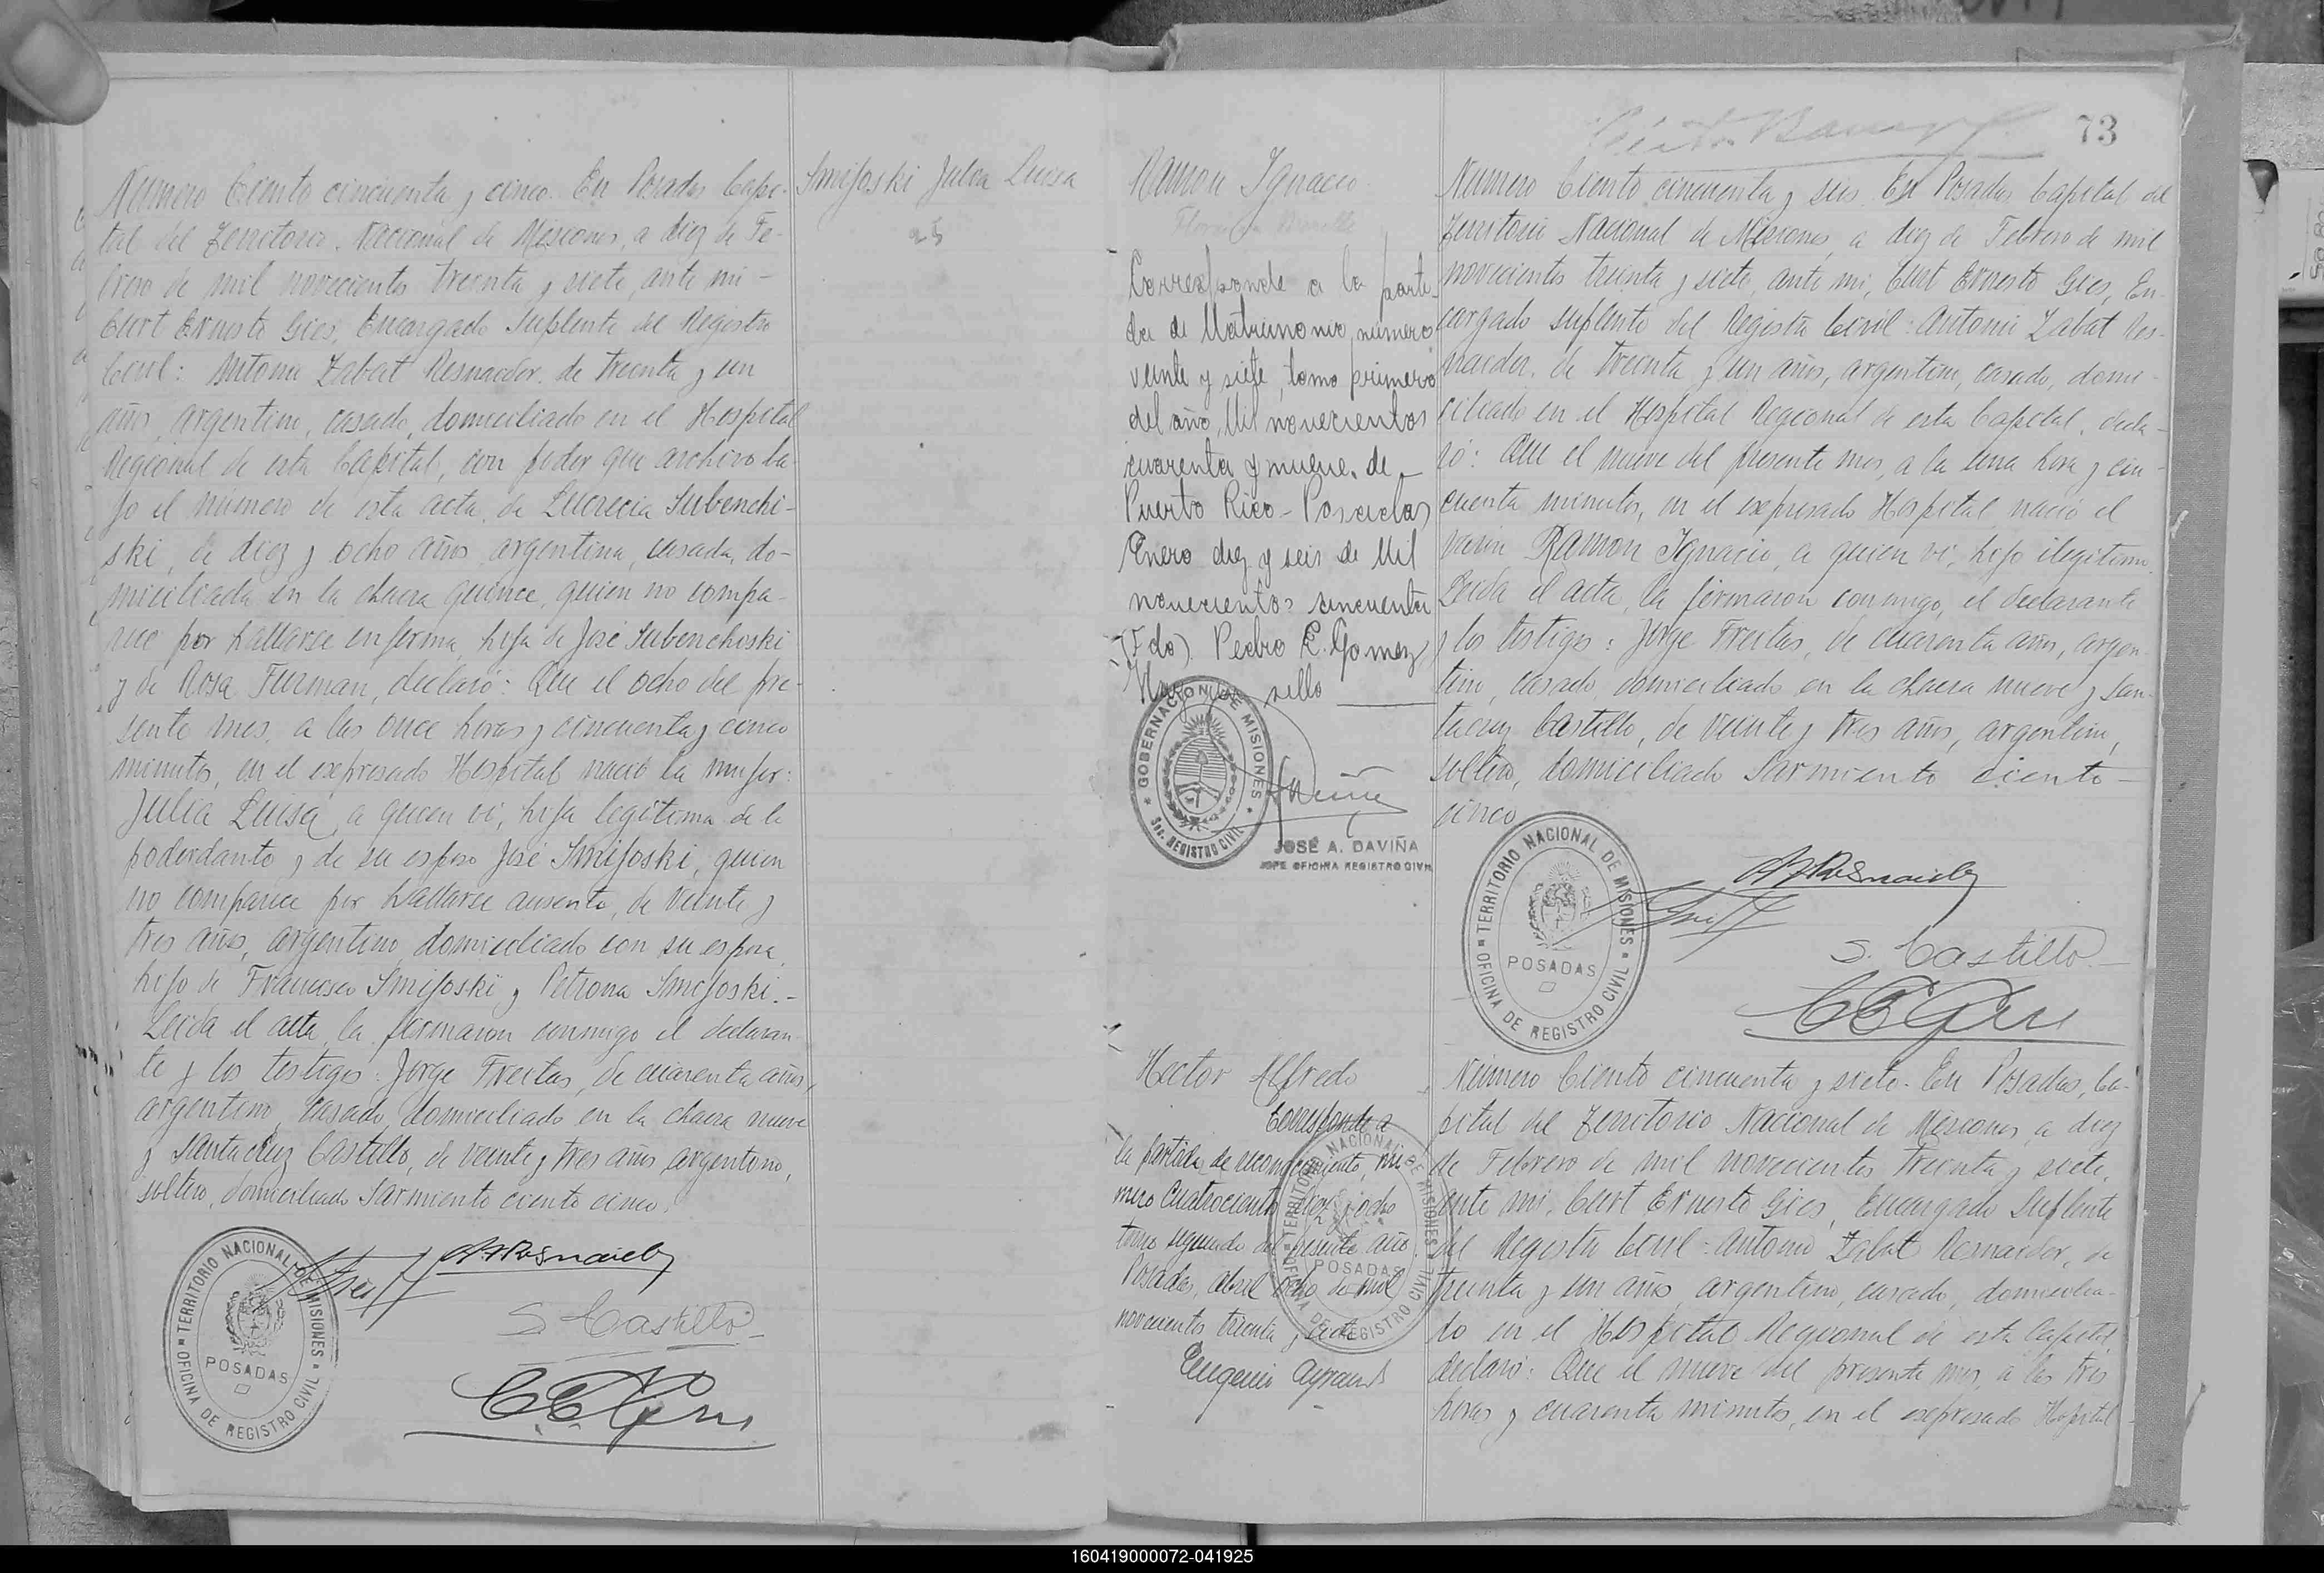 Numero Ciento cincuenta y cinco. En Posadas Capi-
tal del Territorio Nacional de Misiones, a diez de Fe-
brero de mil novecientos treinta y siete, ante mi -
Curt Ernesto Gies, Encargado Suplente del Registro
Civil: Antonio Zabat Resnaider, de treinta y un
años, argentino, casado, domiciliado en el Hospital
Regional de esta Capital, con poder que archivo ba-
jo el número de esta acta, de Lucrecia Subenchi-
ski, de diez y ocho años, argentina, casada, do-
miciliada en la chacra quince, quien no compa-
rece por hallarse enferma, hija de José Subenchoski
y de Rosa Furman, declaró: Que el ocho del pre-
sente mes, a las once horas y cincuenta y cinco
minutos, en el expresado Hospital nació la mujer:
Julia Luisa, a quien vi, hija legítima de la
poderdante y de su esposo José Smijoski, quien
no comparece por hallarse ausente, de veinte y
tres años, argentino, domiciliado con su esposa,
hijo de Francisco Smijoski y Petrona Smijoski.-
Leida el acta, la firmaron conmigo el declaran-
te y los testigos: Jorge Freitas, de cuarenta años,
argentino, casado, domiciliado en la chacra nueve
y Santacruz Castillo, de veinte y tres años, argentino,
soltero, domiciliado Sarmiento ciento cinco.
TERRITORIO NACIONAL DE MISIONES
POSADAS
OFICINA DE REGISTRO CIVIL
S. Castillo
Smijoski Julia Luisa
25
73
Ramon Ignacio
Corresponde a la parti-
da de Matrimonio, número
veinte y siete, tomo primero
del año, Mil novecientos
cuarenta y nueve, de
Puerto Rico - Posadas
Enero diez y seis de Mil
novecientos cincuenta
(Fdo). Pedro E. Gomez
sello
GOBERNACION DE MISIONES
Sec. REGISTRO CIVIL
JOSÉ A. DAVIÑA
JEFE OFICINA REGISTRO CIVIL
Numero Ciento cincuenta y seis. En Posadas Capital del
Territorio Nacional de Misiones, a diez de Febrero de mil
novecientos treinta y siete, ante mi, Curt Ernesto Gies, En-
cargado suplente del Registro Civil: Antonio Zabat Res-
naider, de treinta y un años, argentino, casado, domi-
ciliado en el Hospital Regional de esta Capital, decla-
ró: Que el nueve del presente mes, a la una hora y cin-
cuenta minutos, en el expresado Hospital nació el
varón Ramon Ignacio, a quien vi, hijo ilegítimo.
Leida el acta, la firmaron conmigo, el declarante
y los testigos: Jorge Freitas, de cuarenta años, argen-
tino, casado, domiciliado en la chacra nueve y San-
tacruz Castillo, de veinte y tres años, argentino,
soltero, domiciliado Sarmiento ciento
cinco
TERRITORIO NACIONAL DE MISIONES
POSADAS
OFICINA DE REGISTRO CIVIL
S. Castillo
Hector Alfredo
Corresponde a
la partida de reconocimiento, nú
mero cuatrocientos diez y ocho
tomo segundo del presente año.
Posadas, abril ocho de mil
novecientos treinta y siete
Eugenio Ayrault
TERRITORIO NACIONAL DE MISIONES
POSADAS
OFICINA DE REGISTRO CIVIL
Número Ciento cincuenta y siete. En Posadas, Ca-
pital del Territorio Nacional de Misiones, a diez
de Febrero de mil novecientos treinta y siete,
ante mi, Curt Ernesto Gies, Encargado Suplente
del Registro Civil: Antonio Zabat Resnaider, de
treinta y un años, argentino, casado, domicilia-
do en el Hospital Regional de esta Capital,
declaró: Que el nueve del presente mes, a las tres
horas y cuarenta minutos, en el expresado Hospital
160419000072-041925